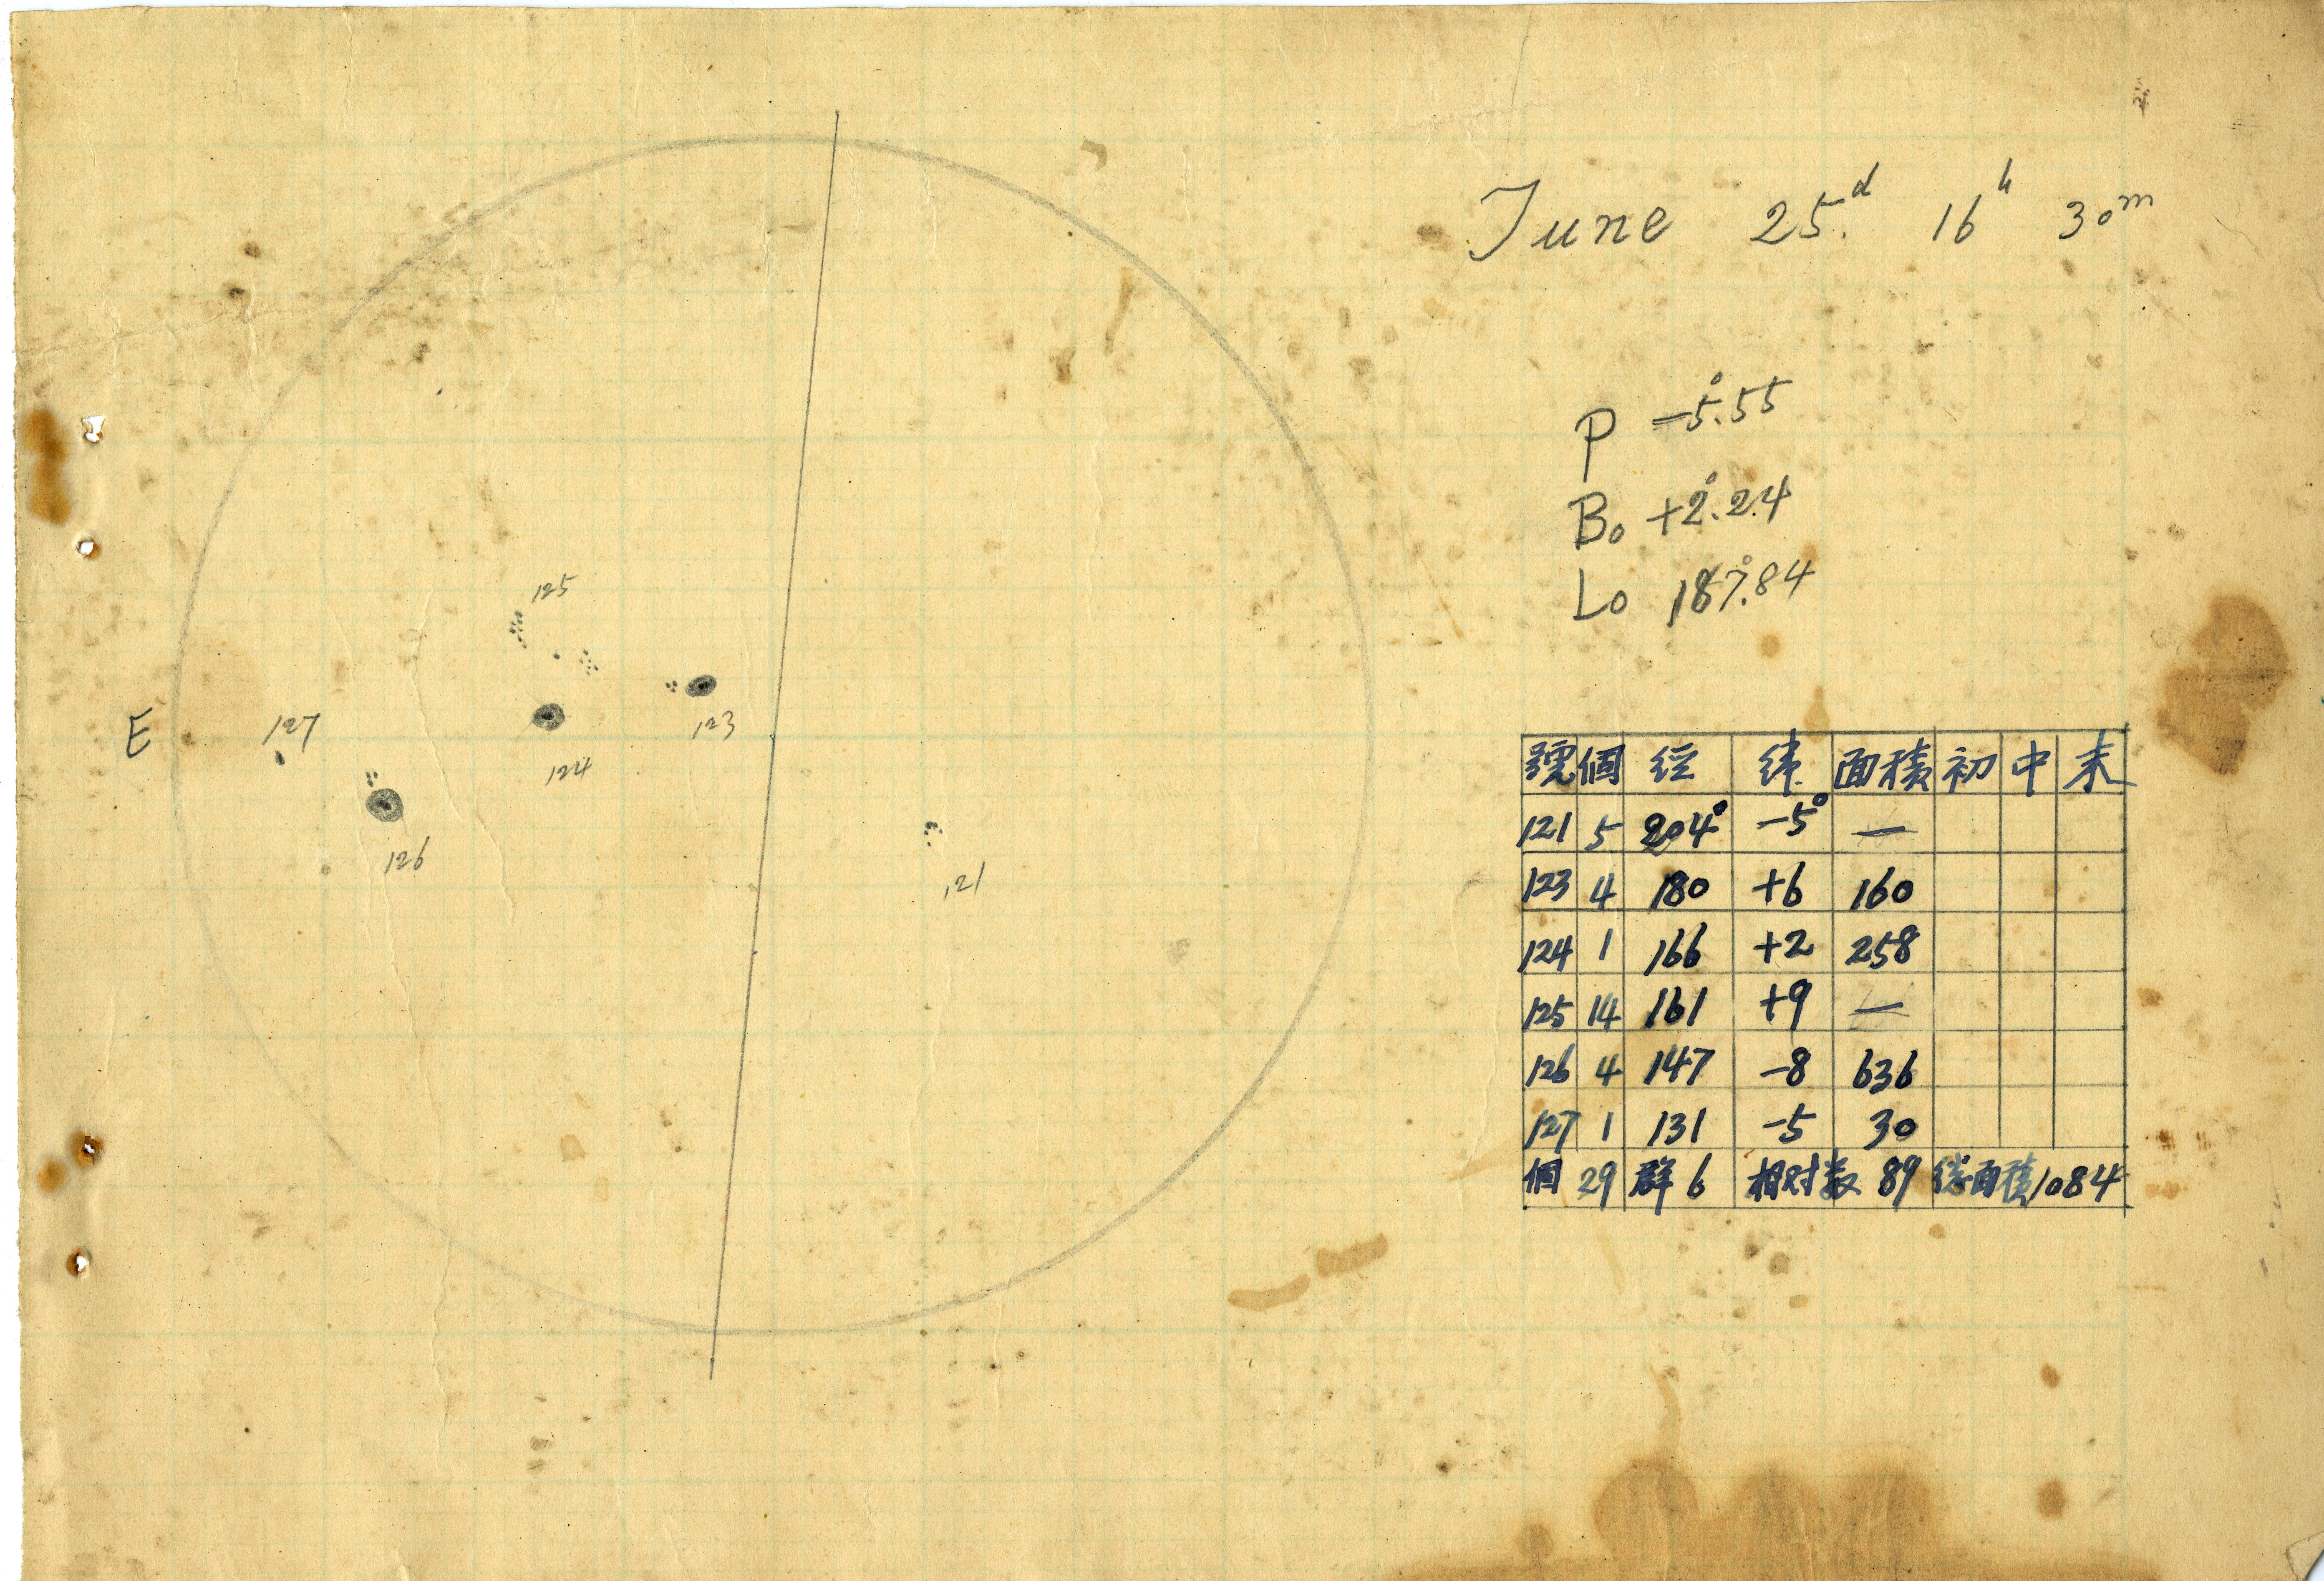 June 25.d 16h 30m
P -5°.55
Bo +2°.24
Lo 187°.84
125
E
127
123
124
126
121
號 個 経 緯 面積 初 中 末
121 5 204° -5° —
123 4 180 +6 160
124 1 166 +2 258
125 14 161 +9 —
126 4 147 -8 636
127 1 131 -5 30
個 29 群 6 相対数 89 総面積 1084